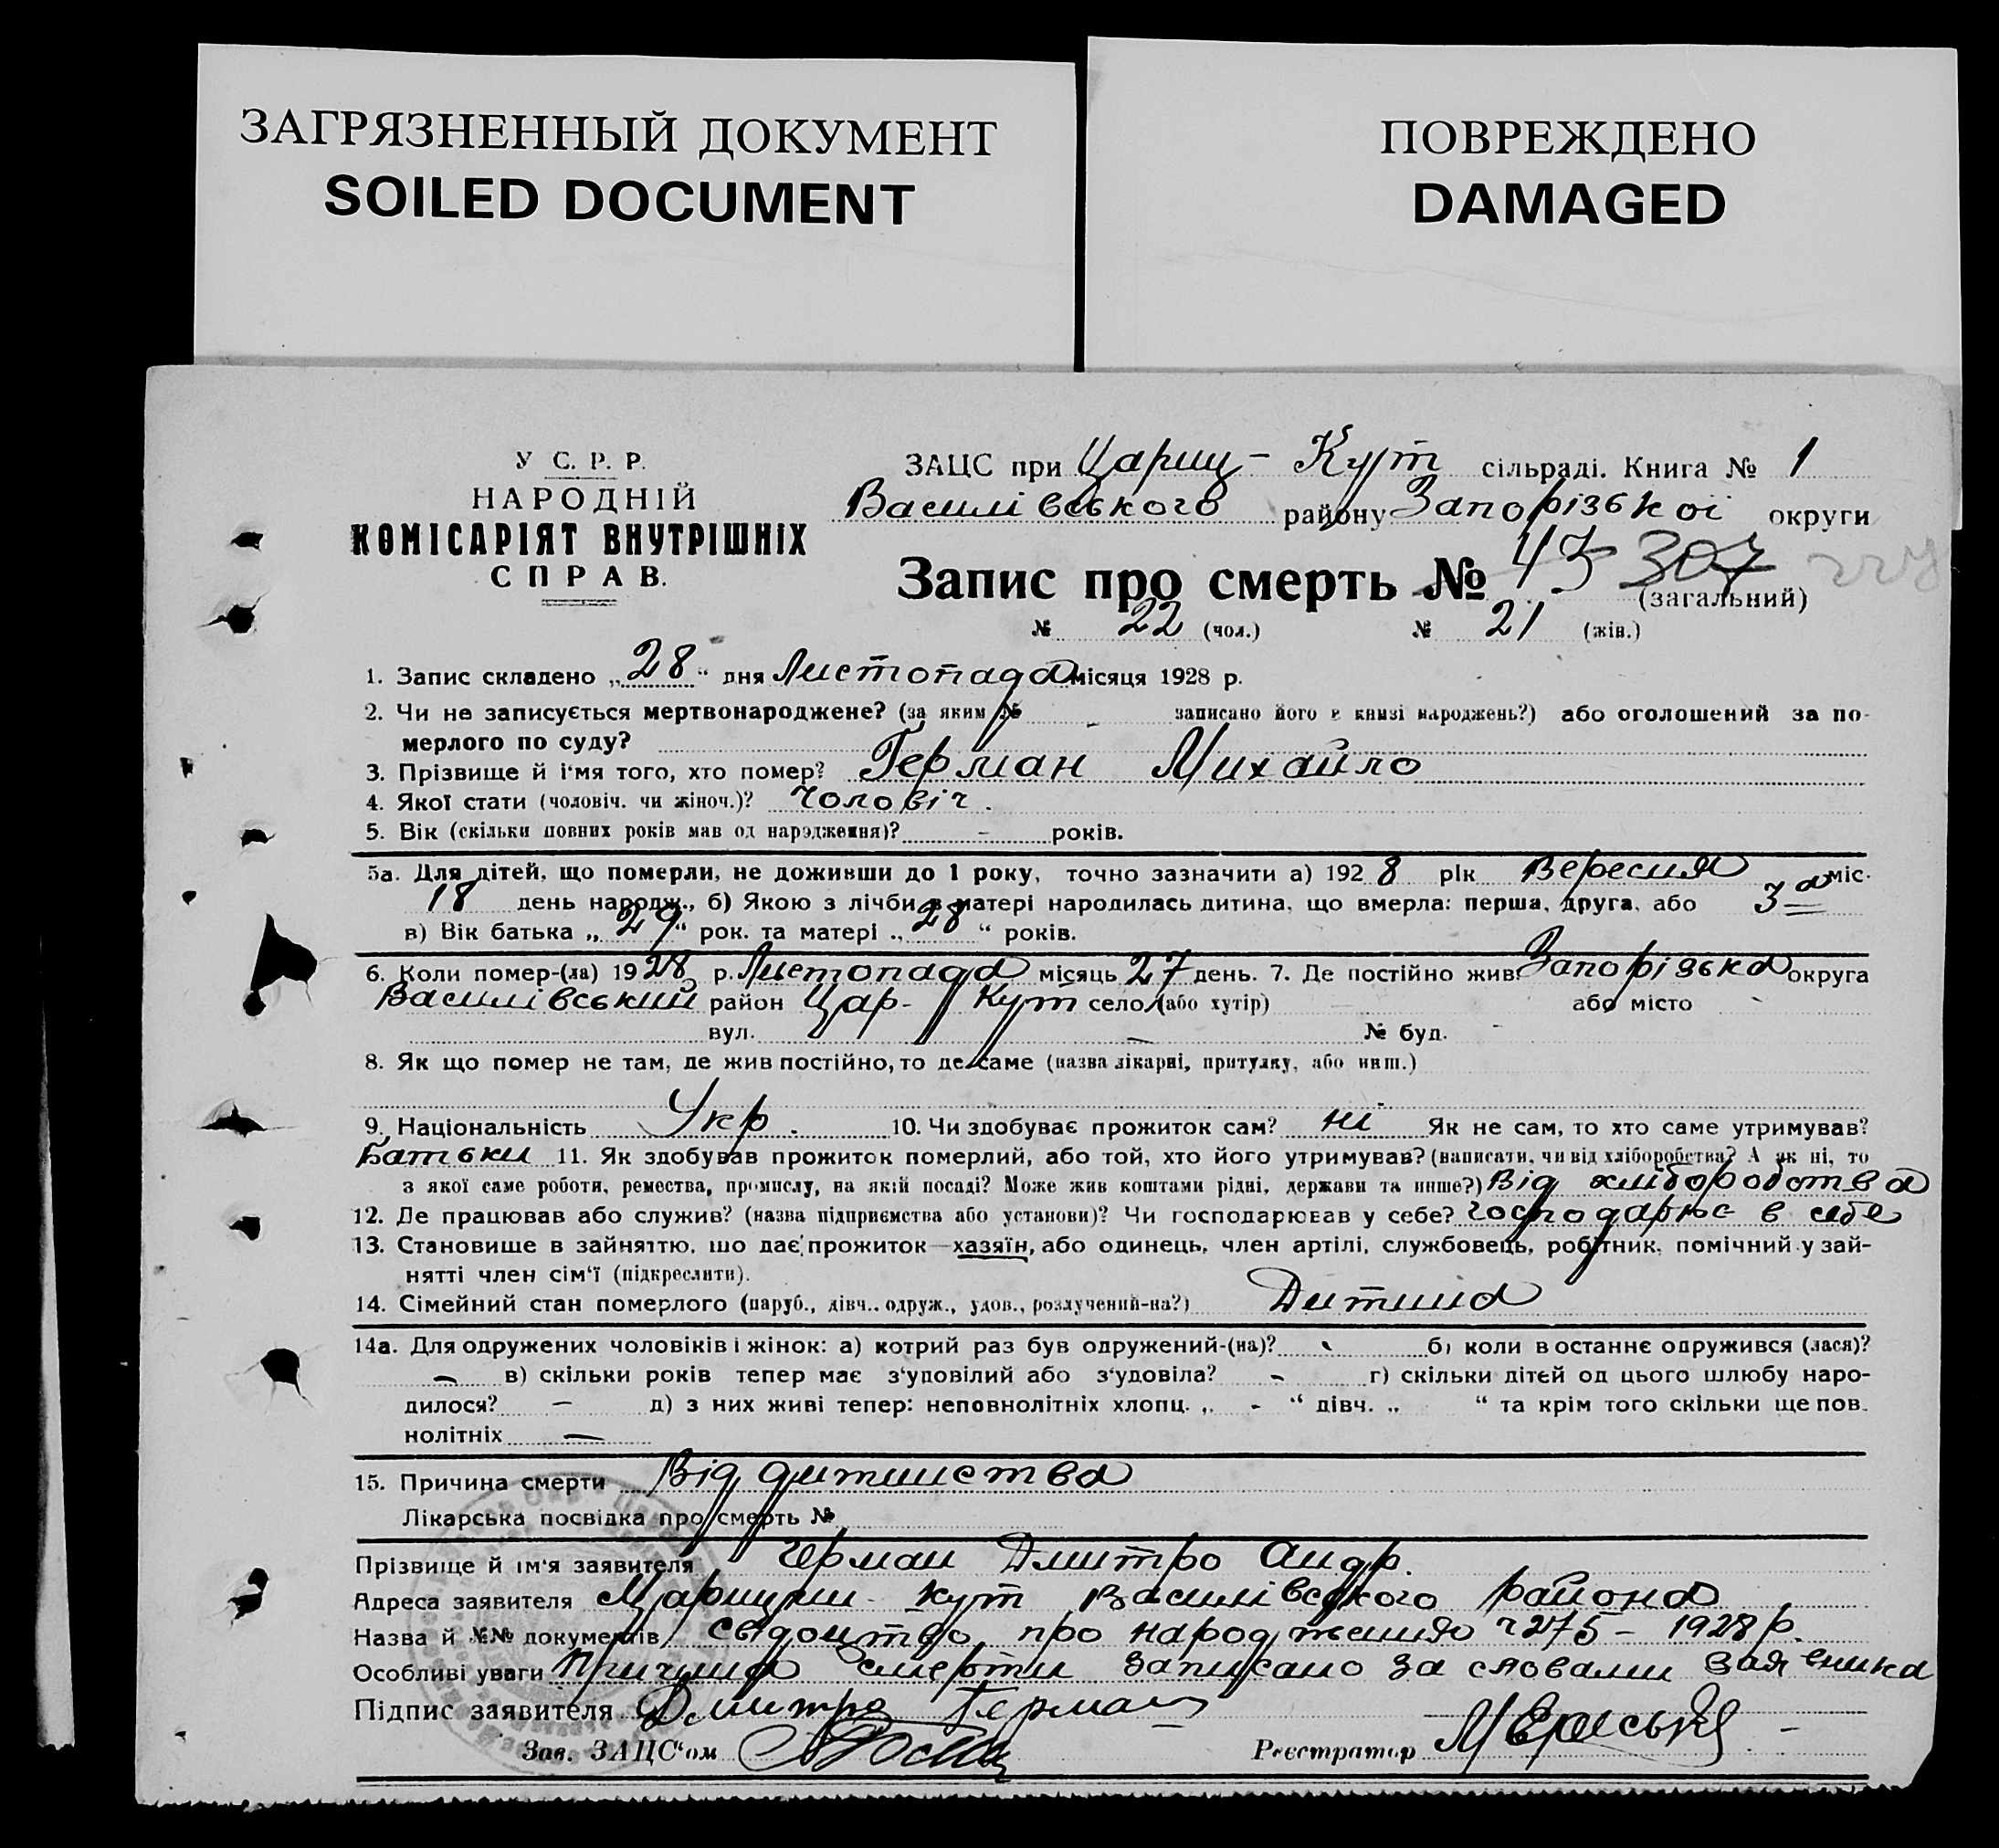 ЗАГРЯЗНЕННЫЙ ДОКУМЕНТ
SOILED DOCUMENT
ПОВРЕЖДЕНО
DAMAGED
У С. Р. Р.
НАРОДНІЙ
КОМІСАРІЯТ ВНУТРІШНІХ
СПРАВ.
ЗАЦС при Цариц - Кут сільраді. Книга № 1
Василівського району Запорізької округи
Запис про смерть № 43 307
(загальний)
№ 22 (чол.) № 21 (жін.)
1. Запис складено „28“ дня Листопада місяця 1928 р.
2. Чи не записується мертвонароджене? (за яким № - записано його в книзі народжень?) або оголошений за по-
мерлого по суду?
3. Прізвище й і'мя того, хто помер? Герман Михайло
4. Якої стати (чоловіч. чи жіноч.)? Чоловіч.
5. Вік (скільки повних років мав од народження)? - років.
5а. Для дітей, що померли, не доживши до 1 року, точно зазначити а) 1928 рік Вересня міс.
18 день народж., б) Якою з лічби в матері народилась дитина, що вмерла: перша, друга, або 3-а
в) Вік батька „29“ рок. та матері „28“ років.
6. Коли помер-(ла) 1928 р. Листопада місяць 27 день. 7. Де постійно жив: Запорізька округа
Василівський район Цар- Кут село (або хутір) або місто -
вул. - № буд. -
8. Як що помер не там, де жив постійно, то де саме (назва лікарні, притулку, або инш.)
9. Національність Укр. 10. Чи здобуває прожиток сам? ні Як не сам, то хто саме утримував?
Батьки 11. Як здобував прожиток померлий, або той, хто його утримував? (написати, чи від хліборобства? А як ні, то
з якої саме роботи, ремества, промислу, на якій посаді? Може жив коштами рідні, держави та инше?) Від хліборобства
12. Де працював або служив? (назва підприємства або установи)? Чи господарював у себе? господарює в себе
13. Становище в зайняттю, що дає прожиток—хазяїн, або одинець, член артілі, службовець, робітник, помічний у зай-
нятті член сім'ї (підкреслити).
14. Сімейний стан померлого (паруб., дівч., одруж., удов., розлучений-на?) Дитина
14а. Для одружених чоловіків і жінок: а) котрий раз був одружений-(на)? - б) коли востаннє одружився (лася)?
- в) скільки років тепер має з'удовілий або з'удовіла? - г) скільки дітей од цього шлюбу наро-
дилося? - д) з них живі тепер: неповнолітніх хлопц. „ - “ дівч. „ “ та крім того скільки ще пов-
нолітніх -
15. Причина смерти Від дитинства
Лікарська посвідка про смерть №
Прізвище й ім'я заявителя Герман Дмитро Андр.
Адреса заявителя Царицин - Кут Василівського района
Назва й №№ документів свідоцтво про народження ч 275 - 1928 р.
Особливі уваги Причина смерти записано за словами заявника
Підпис заявителя Дмитро Герман
Зав. ЗАЦС'ом Реєстратор